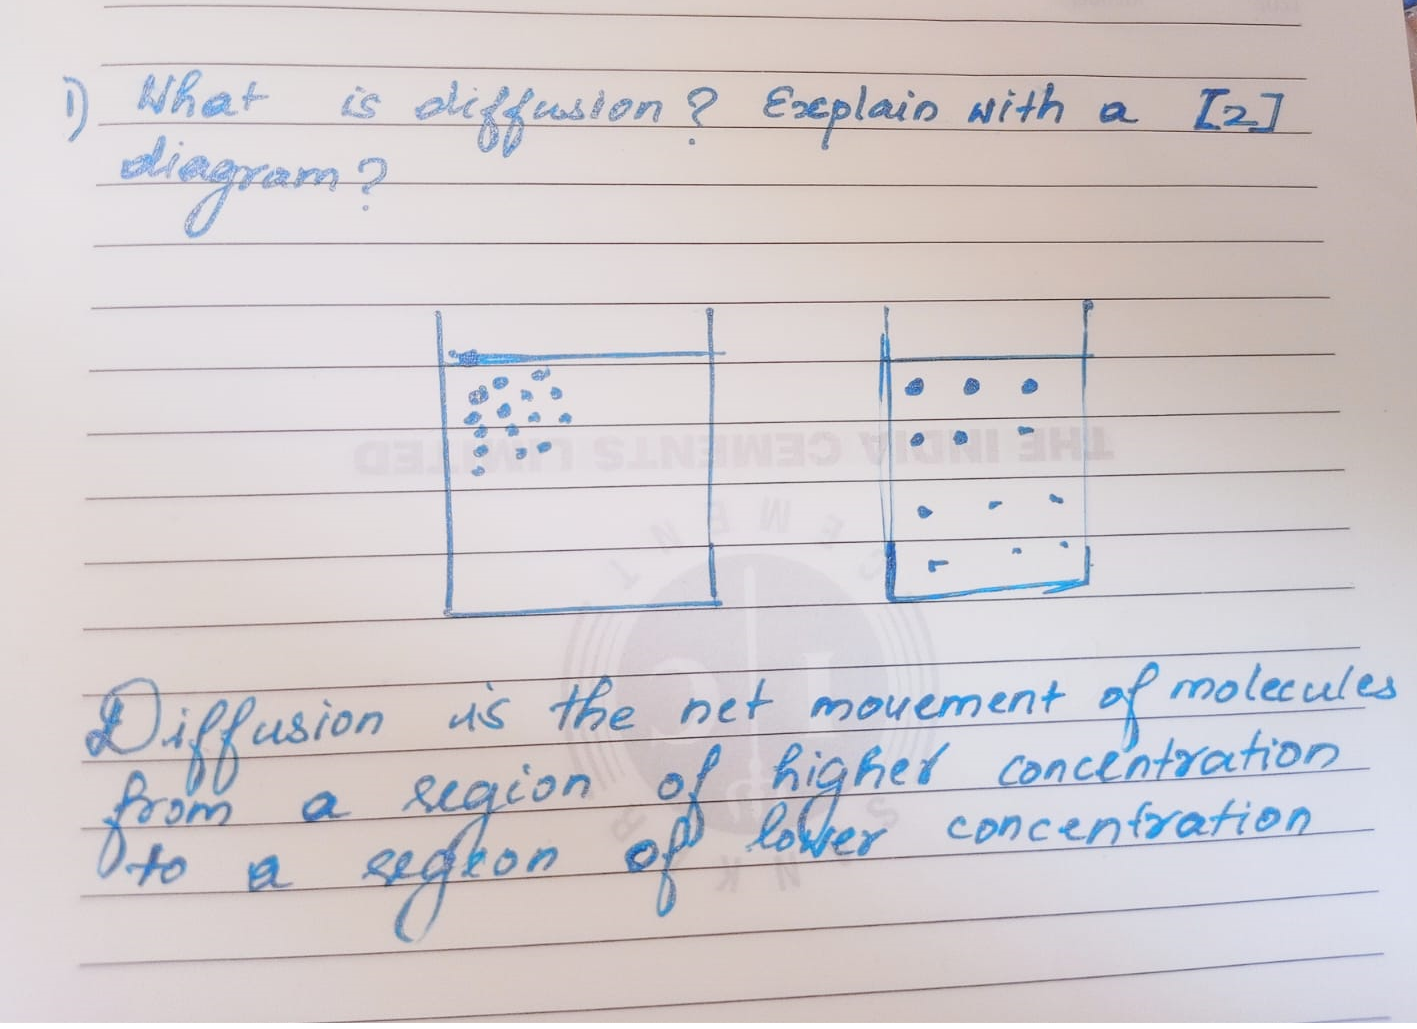 1) What is diffusion? Explain with a [2]
diagram?
THE INDIA CEMENTS LIMITED
Diffusion is the net movement of molecules
from a region of higher concentration
to a region of lower concentration